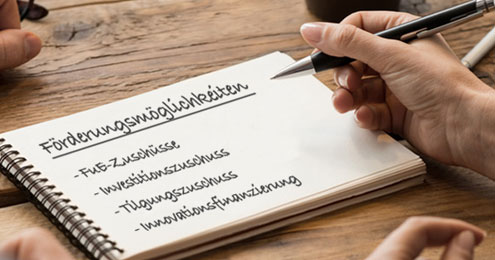 Förderungsmöglichkeiten
-FuE-Zuschüsse
-Investitionszuschuss
-Tilgungszuschuss
-Innovationsfinanzierung